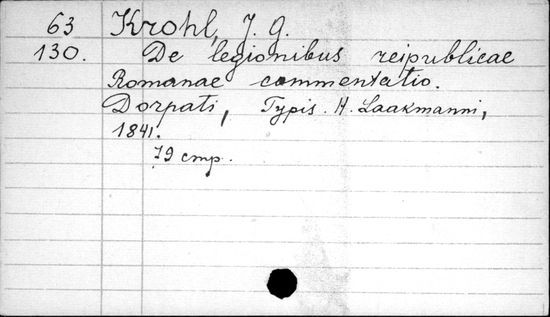 63 Krohl, J. G.
130. De legionibus reipublicae
Romanae commentatio.
Dorpati, Typis. H. Laakmanni,
1841.
79 cmp.